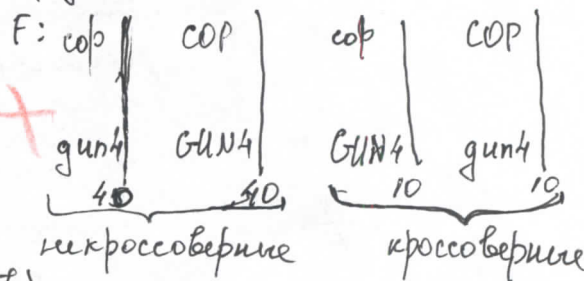 F: cop COP cop COP
gun4 GUN4 GUN4 gun4
40 40 10 10
некроссоверные кроссоверные